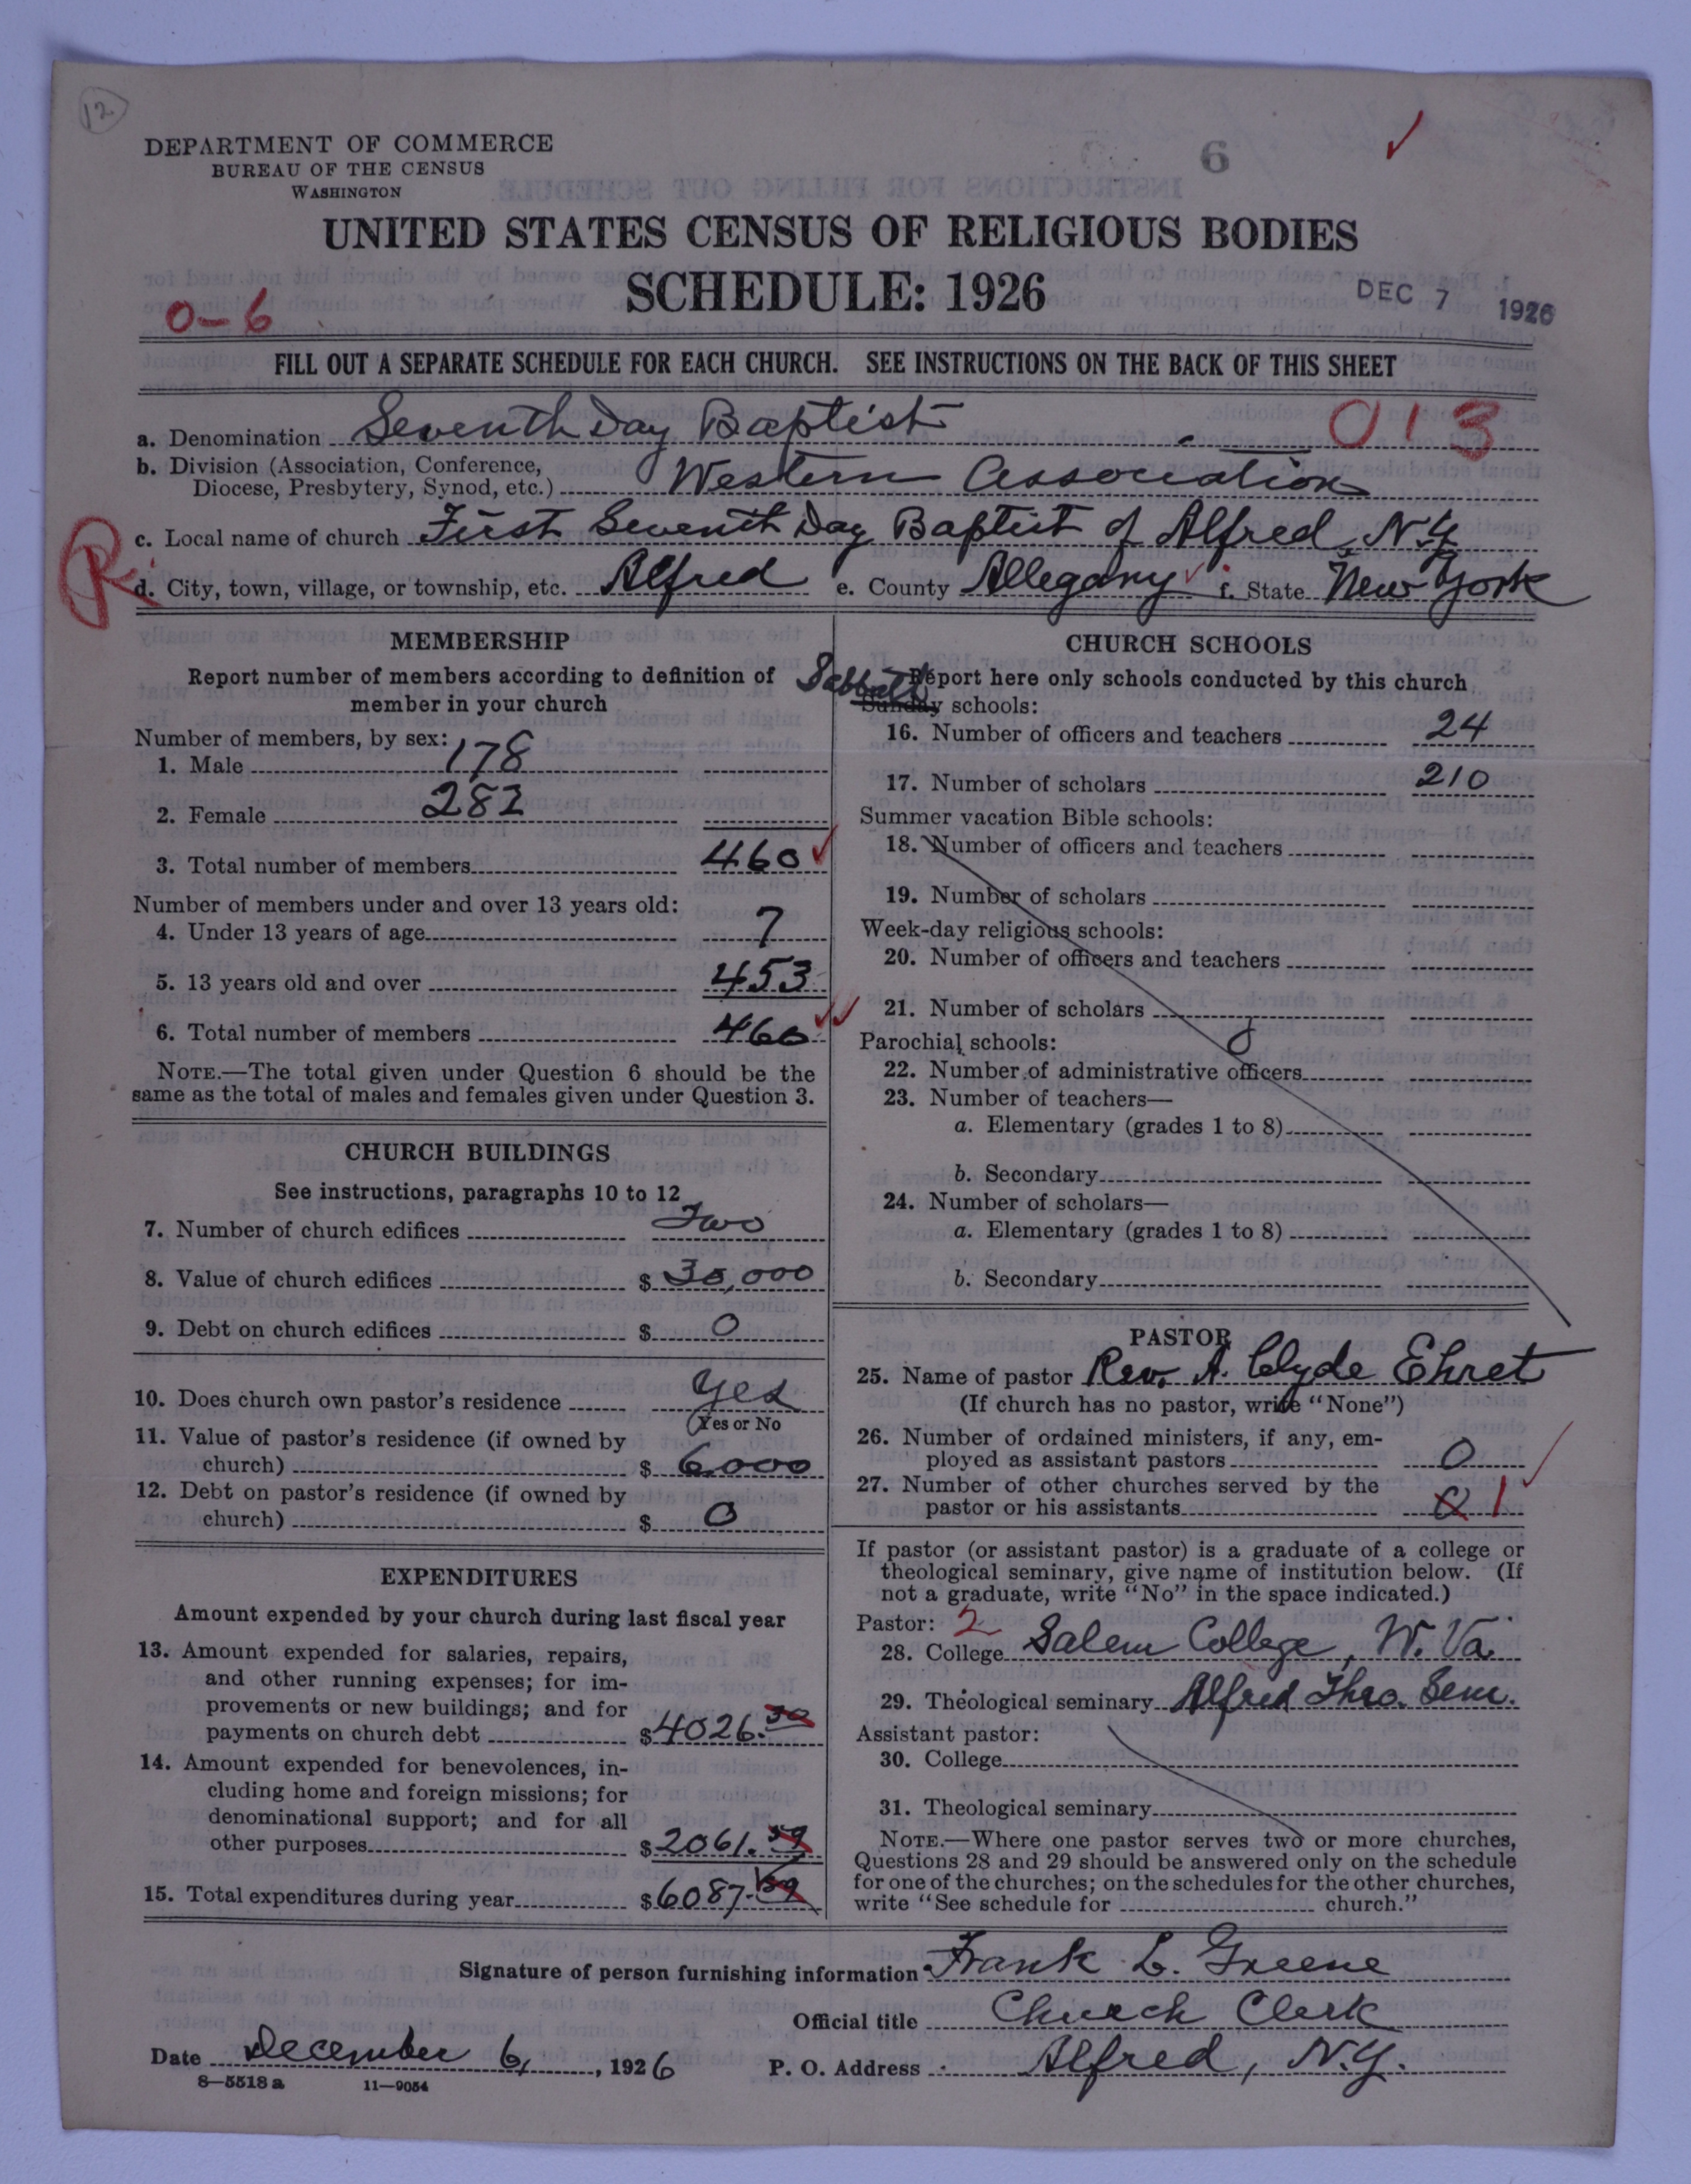 12
DEPARTMENT OF COMMERCE
BUREAU OF THE CENSUS
WASHINGTON
6
UNITED STATES CENSUS OF RELIGIOUS BODIES
SCHEDULE: 1926
DEC 7 1926
0-6
FILL OUT A SEPARATE SCHEDULE FOR EACH CHURCH. SEE INSTRUCTIONS ON THE BACK OF THIS SHEET
a. Denomination Seventh Day Baptist 013
b. Division (Association, Conference,
Diocese, Presbytery, Synod, etc.) Western Association
c. Local name of church First Seventh Day Baptist of Alfred, N.Y.
R
d. City, town, village, or township, etc. Alfred e. County Allegany f. State New York
MEMBERSHIP
Report number of members according to definition of
member in your church
Number of members, by sex:
1. Male 178
2. Female 282
3. Total number of members 460
Number of members under and over 13 years old:
4. Under 13 years of age 7
5. 13 years old and over 453
6. Total number of members 460
NOTE.—The total given under Question 6 should be the
same as the total of males and females given under Question 3.
CHURCH BUILDINGS
See instructions, paragraphs 10 to 12
7. Number of church edifices Two
8. Value of church edifices $ 30,000
9. Debt on church edifices $ 0
10. Does church own pastor's residence Yes
(Yes or No
11. Value of pastor's residence (if owned by
church) $ 6000
12. Debt on pastor's residence (if owned by
church) $ 0
EXPENDITURES
Amount expended by your church during last fiscal year
13. Amount expended for salaries, repairs,
and other running expenses; for im-
provements or new buildings; and for
payments on church debt $ 4026.30
14. Amount expended for benevolences, in-
cluding home and foreign missions; for
denominational support; and for all
other purposes $ 2061.59
15. Total expenditures during year $ 6087.89
CHURCH SCHOOLS
Report here only schools conducted by this church
Sabbath
Sunday schools:
16. Number of officers and teachers 24
17. Number of scholars 210
Summer vacation Bible schools:
18. Number of officers and teachers
19. Number of scholars
Week-day religious schools:
20. Number of officers and teachers
21. Number of scholars
Parochial schools:
22. Number of administrative officers
23. Number of teachers—
a. Elementary (grades 1 to 8)
b. Secondary
24. Number of scholars—
a. Elementary (grades 1 to 8)
b. Secondary
PASTOR
25. Name of pastor Rev. A. Clyde Ehret
(If church has no pastor, write "None")
26. Number of ordained ministers, if any, em-
ployed as assistant pastors 0
27. Number of other churches served by the
pastor or his assistants 0 1
If pastor (or assistant pastor) is a graduate of a college or
theological seminary, give name of institution below. (If
not a graduate, write "No" in the space indicated.)
Pastor: 2
28. College Salem College, W. Va.
29. Theological seminary Alfred Theo. Sem.
Assistant pastor:
30. College
31. Theological seminary
NOTE.—Where one pastor serves two or more churches,
Questions 28 and 29 should be answered only on the schedule
for one of the churches; on the schedules for the other churches,
write "See schedule for church."
Signature of person furnishing information Frank L. Greene
Official title Church Clerk
Date December 6, 1926 P. O. Address Alfred, N.Y.
8—5518 a 11—9054